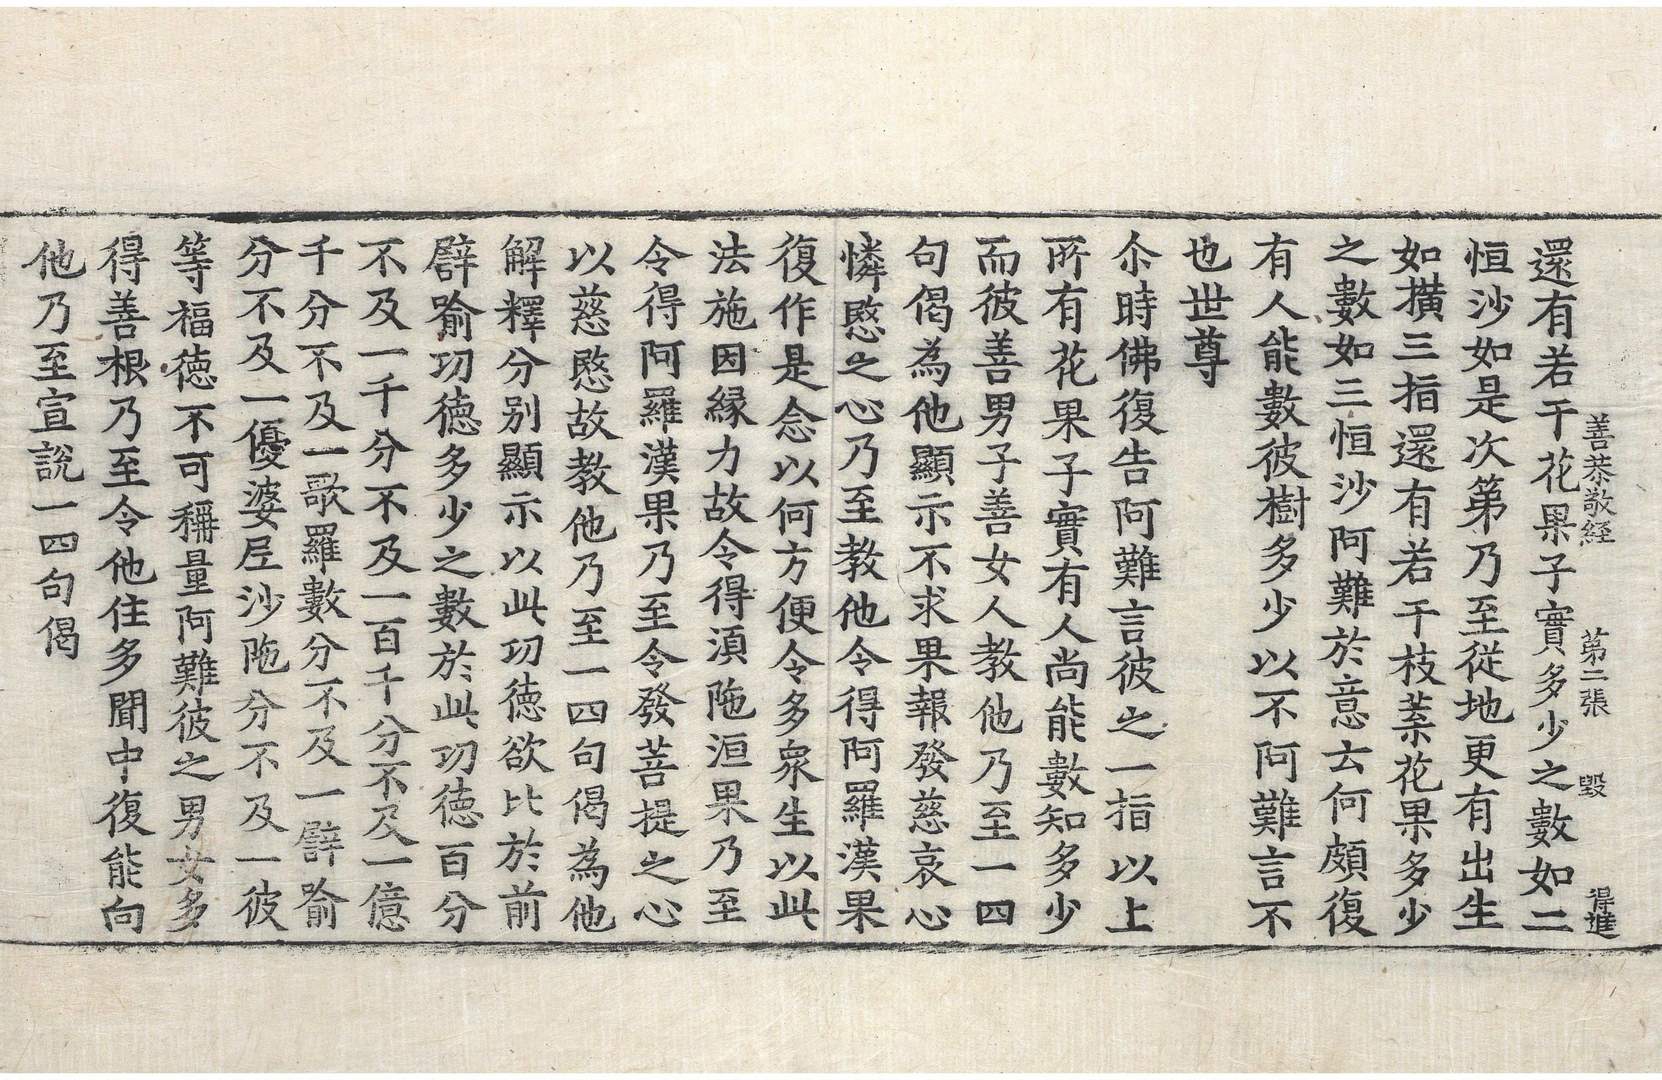 善恭敬経 第二張 毀 得進
還有若干花果子實多少之數如二
恒沙如是次第乃至従地更有出生
如撗三指還有若干枝葉花果多少
之數如三恒沙阿難於意云何頗復
有人能數彼樹多少以不阿難言不
也世尊
尒時佛復告阿難言彼之一指以上
所有花果子實有人尚能數知多少
而彼善男子善女人教他乃至一四
句偈為他顯示不求果報發慈哀心
憐愍之心乃至教他令得阿羅漢果
復作是念以何方便令多衆生以此
法施因縁力故令得湏陁洹果乃至
令得阿羅漢果乃至令發菩提之心
以慈愍故教他乃至一四句偈為他
解釋分別顯示以此功徳欲比於前
譬喻功徳多少之數於此功徳百分
不及一千分不及一百千分不及一億
千分不及一歌羅數分不及一譬喻
分不及一優婆𡰱沙陁分不及一彼
等福徳不可稱量阿難彼之男女多
得善根乃至令他住多聞中復能向
他乃至宣說一四句偈